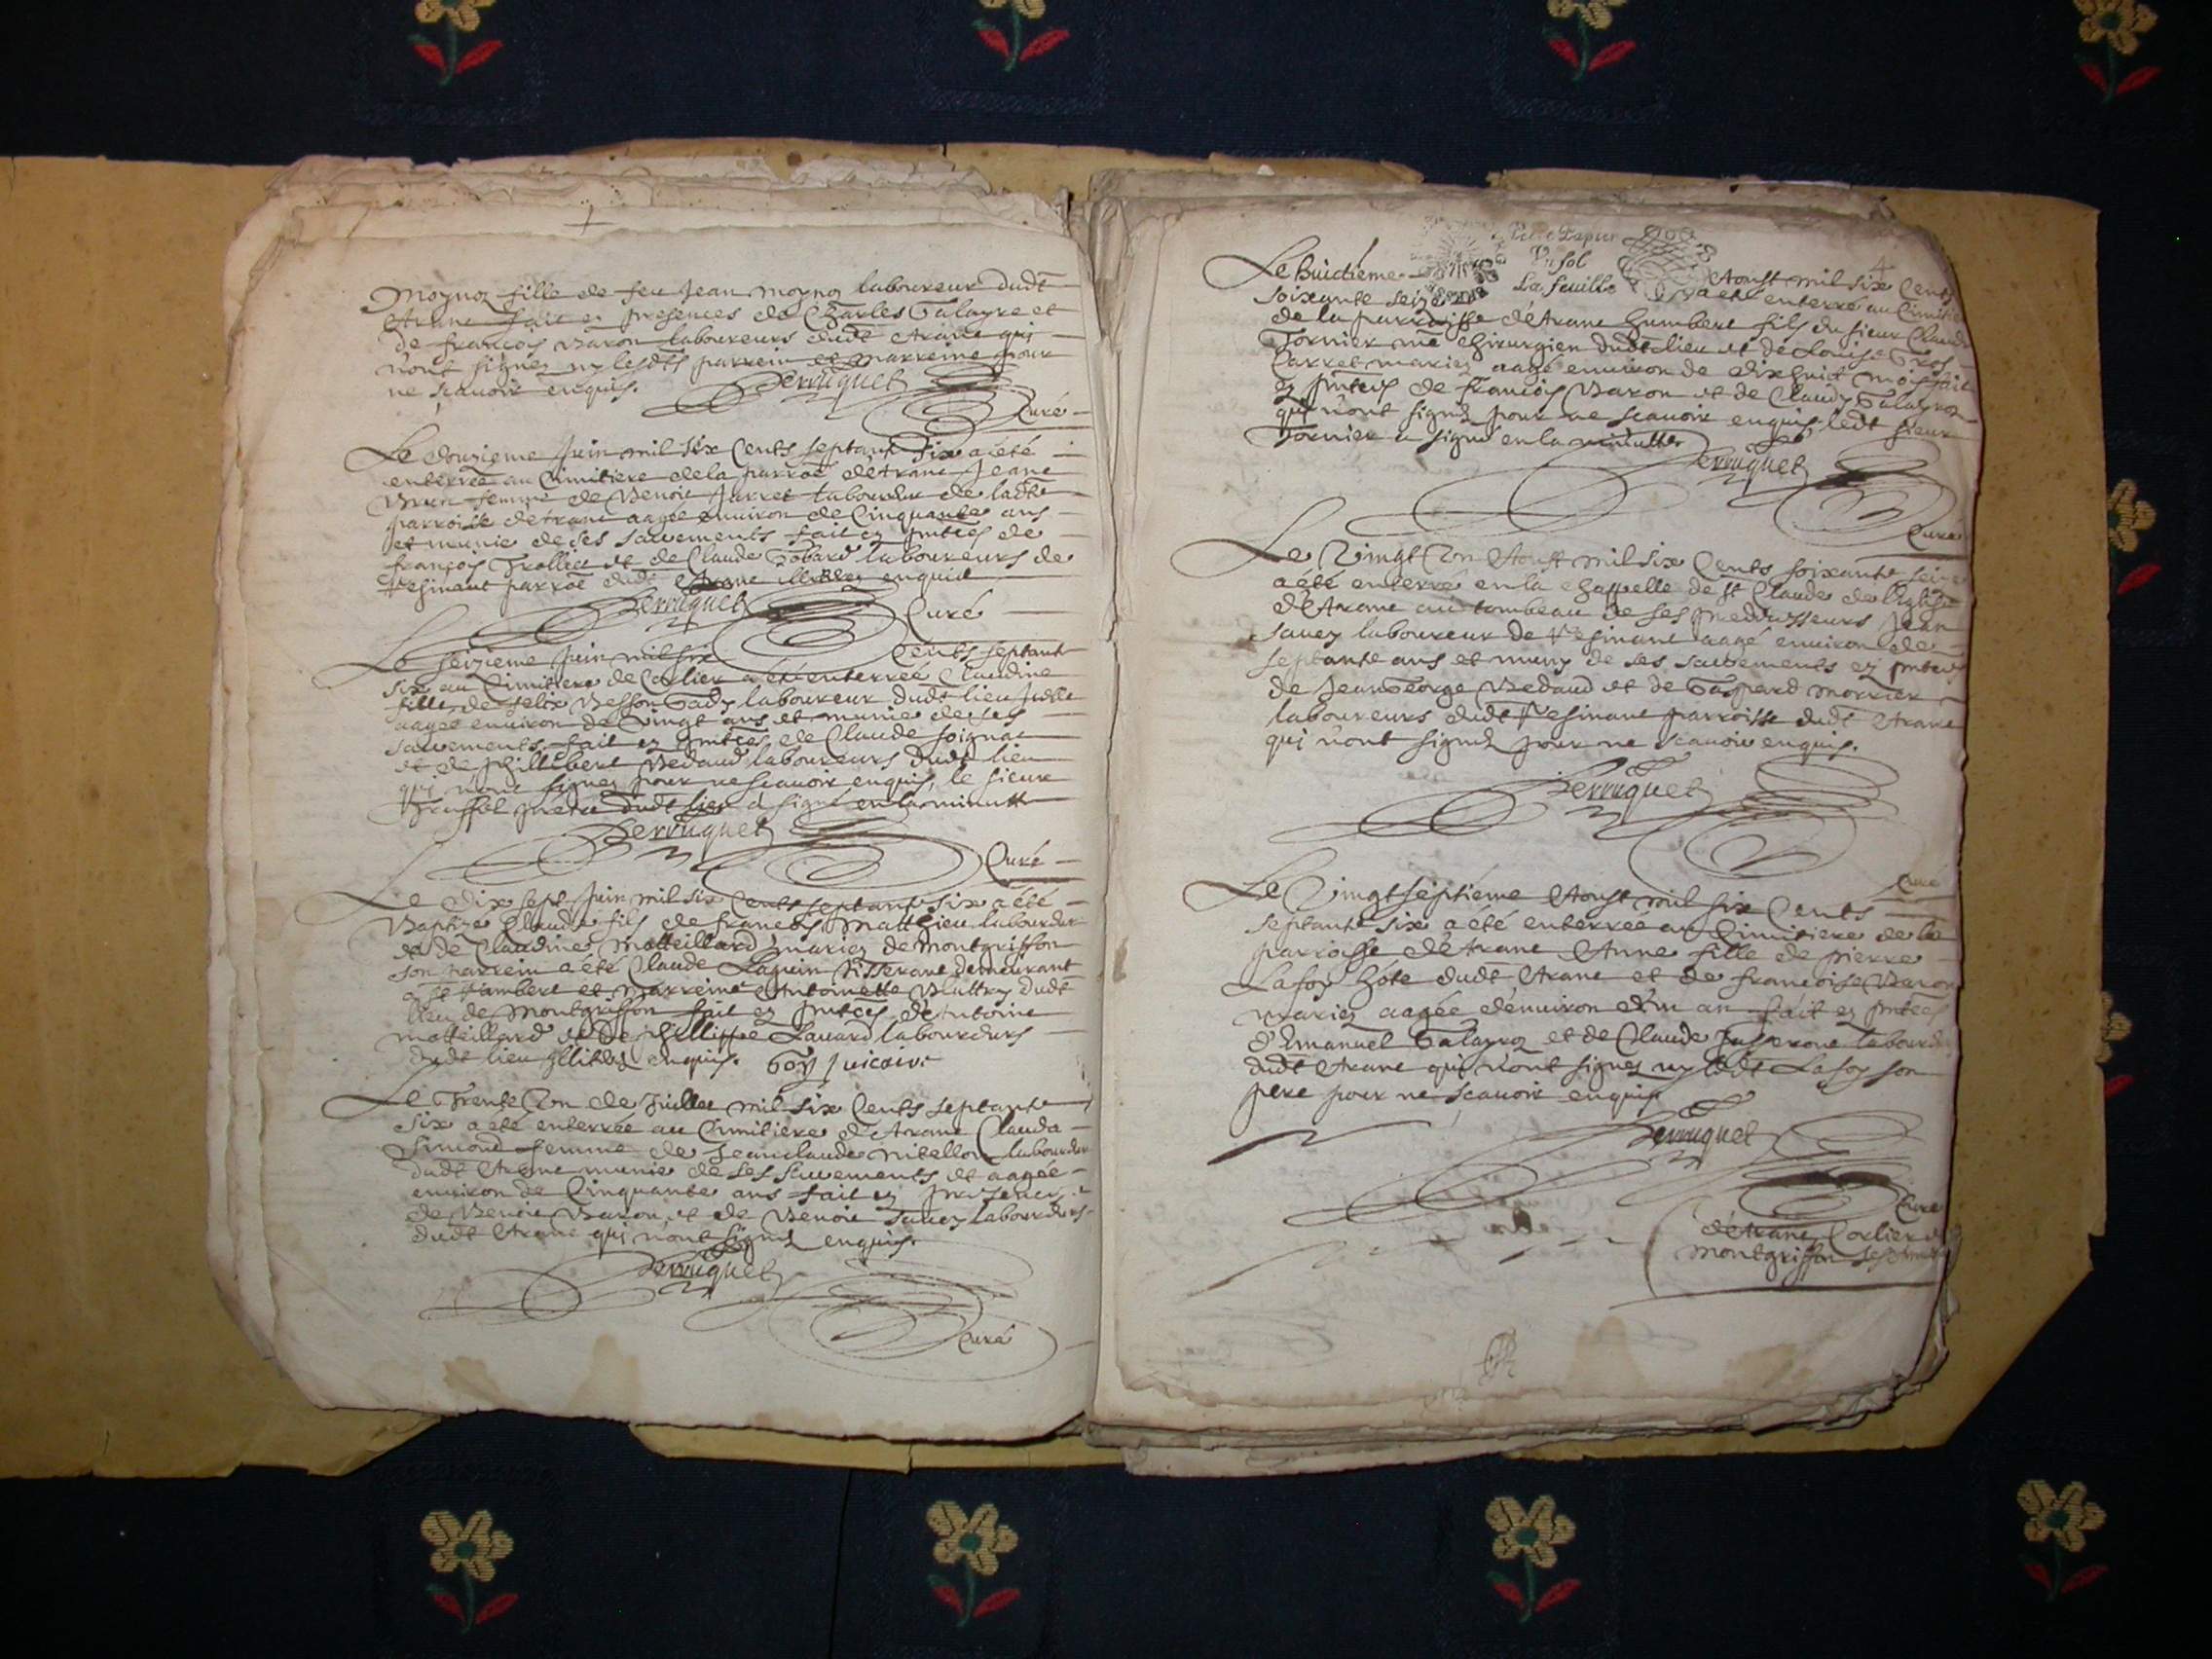 Moynoz fille de feu Jean moynoz laboureur dudt
Arane fait en presences de Charles Galayre et
de françois Baron laboureurs dudt Arane qui
n'ont signez ny lesdts parrein et marreine pour
ne scavoir enquis. Perruquet
Curé
Le douzieme Juin mil six Cents septante six a été
enterrée au Cimitiere de la parroe détrane Jeane
Brun femme de Benoit Jarret laboureur de ladte
parroisse détrane aagée environ de Cinquante ans
et munie de ses sacrements fait en pntces de
françois Trolliet et de Claude Gobard laboureurs de
Resinant parroe dudt Arane illitérez enquis
Perruquet Curé
Le seizieme Juin mil six Cents septante
six au Cimitiere de Corlier a été enterrée Claudine
fille de felix Besson Gady laboureur dudt lieu
aagée environ de Vingt ans et munie de ses
sacrements fait en pntces de Claude
et de phillibert Bedaud laboureurs dudt lieu
qui n'ont signez pour ne scavoir enquis, le sieur
prêtre dudt lieu a signé en la minutte
Perruquet
Curé
Le dix sept Juin mil six Cents septante six a été
Baptizé Claude fils de francois Matthieu laboureur
et de Claudine Motteillard mariez de montgriffon
son parrein a été Claude Laguin Tisserant demeurant
a St Rambert et marreine Antoinette dudt
lieu de Montgriffon fait en pntces dAntoine
motteillard et de phillippe Lavard laboureurs
dudt lieu illitérez enquis.
Le Trente Un de Juillet mil six Cents septante
six a été enterrée au Cimitiere d'Arane Clauda
Simond femme de Jean claude nitellon laboureur
dudt Arane munie de ses sacrements et aagée
environ de Cinquante ans fait en presences
de Benoit Baron et de Benoit Savey laboureurs
dudt Arane qui n'ont signéz enquis.
Perruquet
Curé
Petit Papier
Un sol
La feuille
4
Le huictième Aoust mil six Cents
soixante seize a été enterré au Cimitiere
de la parroisse détrane humbert fils du sieur Claude
Tornier me chirurgien dudt lieu et de Louise Gros
Carret mariez aagé environ de dixhuict mois fait
en pntces de françois Baron et de Claudy Galayroz
qui n'ont signéz pour ne scavoir enquis, ledt sieur
Tornier a signé en la minutte
Perruquet
Curé
Le Vingt Un Aoust mil six Cents soixante seize
a été enterré en la chappelle de St Claude de l'Eglise
d'Arane au tombeau de ses predecesseurs Jean
Savey laboureur de Resinant aagé environ de
septante ans et muny de ses sacrements en pntces
de Jean George Bedaud et de Gaspard morrier
laboureurs dudt Resinant parroisse dudt Arane
qui n'ont signéz pour ne scavoir enquis.
Perruquet
Curé
Le Vingt septiéme Aoust mil six Cents
septante six a été enterrée au Cimitiere de la
parroisse détrane Anne fille de pierre
Lafoy hôte dudt Arane et de francoise Baron
mariez aagée denviron d'un an fait en pntces
d'Emanuel Galayroz et de Claude laboureurs
dudt Arane qui n'ont signez ny ledt Lafoy son
pere pour ne scavoir enquis
Perruquet
Curé
détrane, Corlier et
Montgriffon